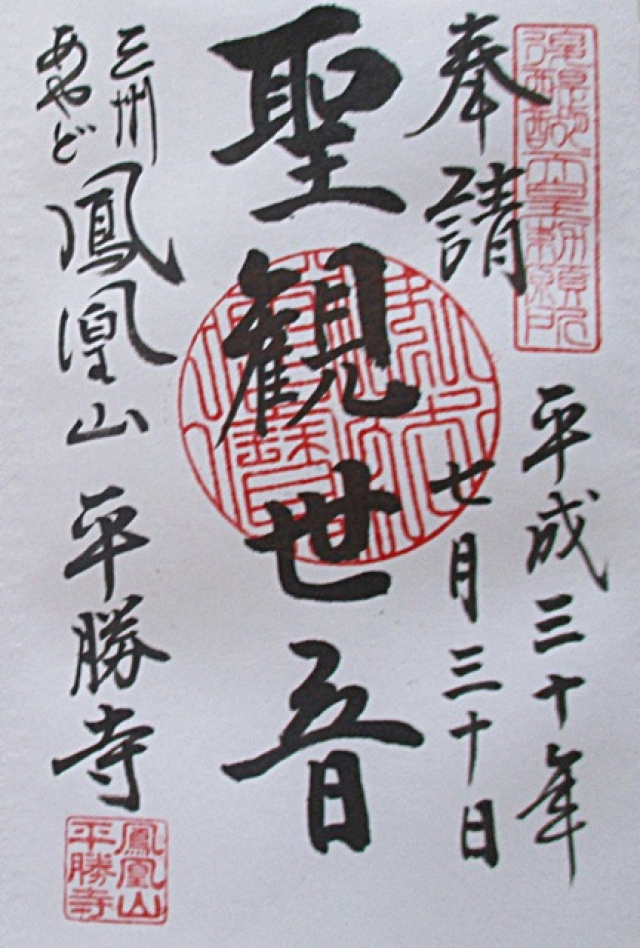 後醍醐天皇勅願所
奉請
平成三十年
七月三十日
聖観世音
三州
あやど
鳳凰山 平勝寺
鳳凰山
平勝寺